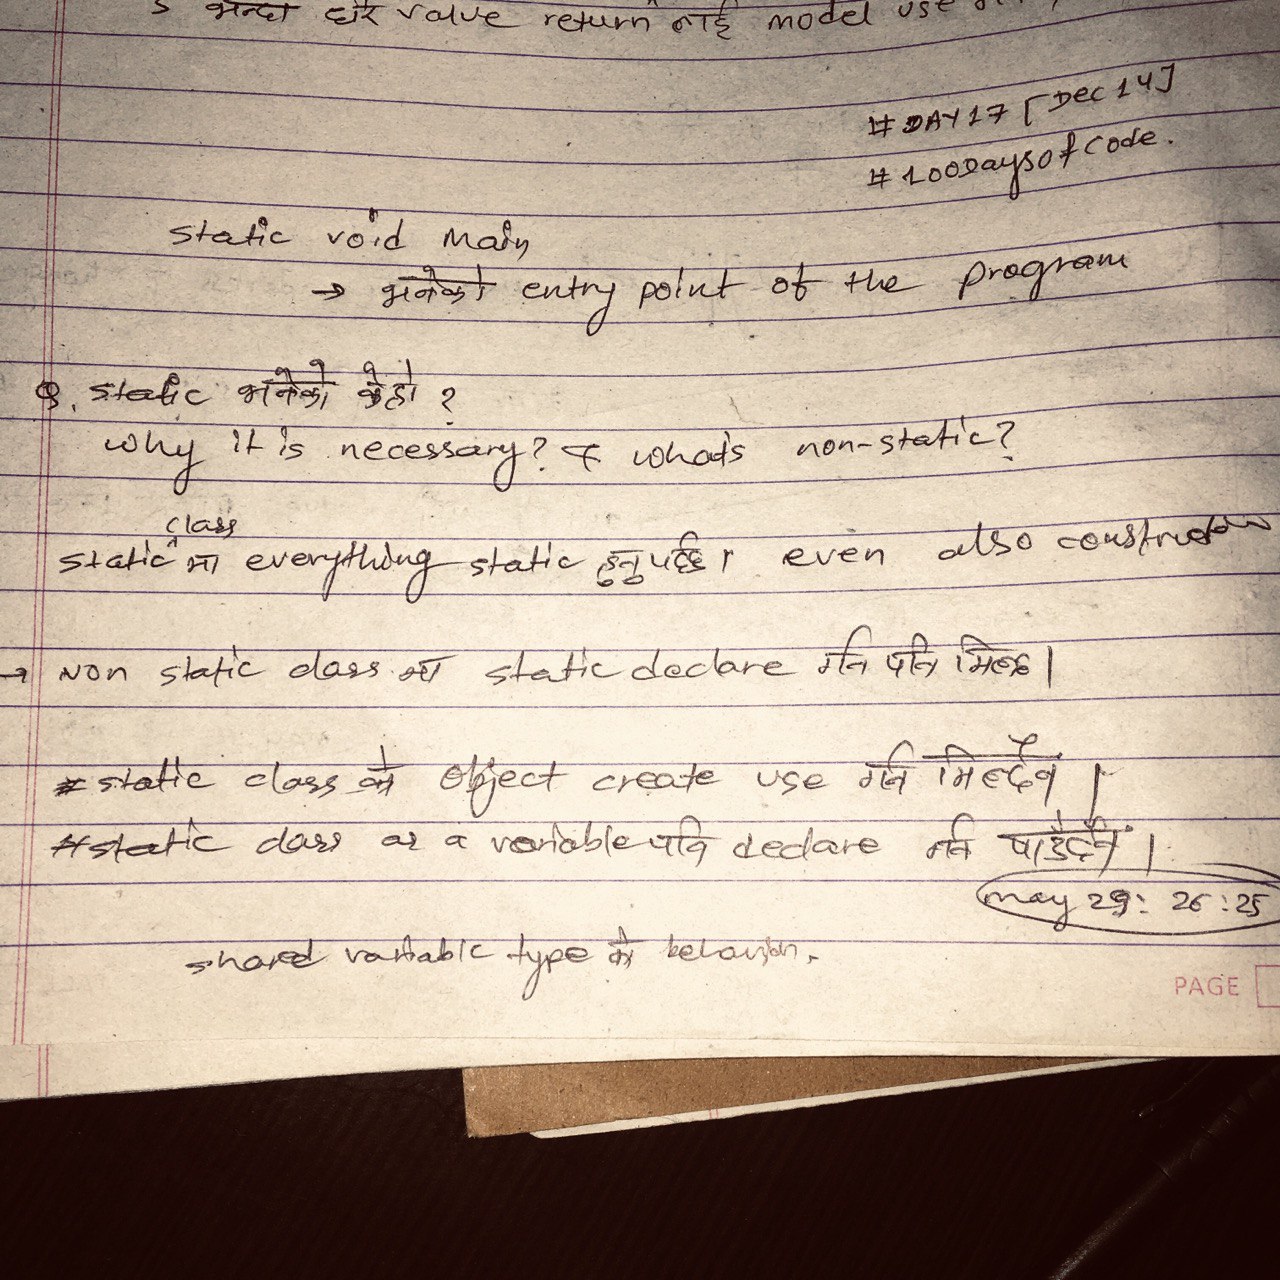 भन्दा धेरै value return लाई model use
# DAY 17 [Dec 14]
# 100DaysOfCode.
static void Main
→ भनेको entry point of the program
Q. static भनेको के हो ?
why it is necessary? & whats non-static?
class
static मा everything static हुनुपर्दछ। even also constructor
→ Non static class मा static declare गर्न पनि मिल्छ।
# static class को object create use गर्न मिल्दैन ।
# static class as a variable पनि declare गर्न पाउँदैन ।
may 29: 26:25
shared variable type को behavion.
PAGE